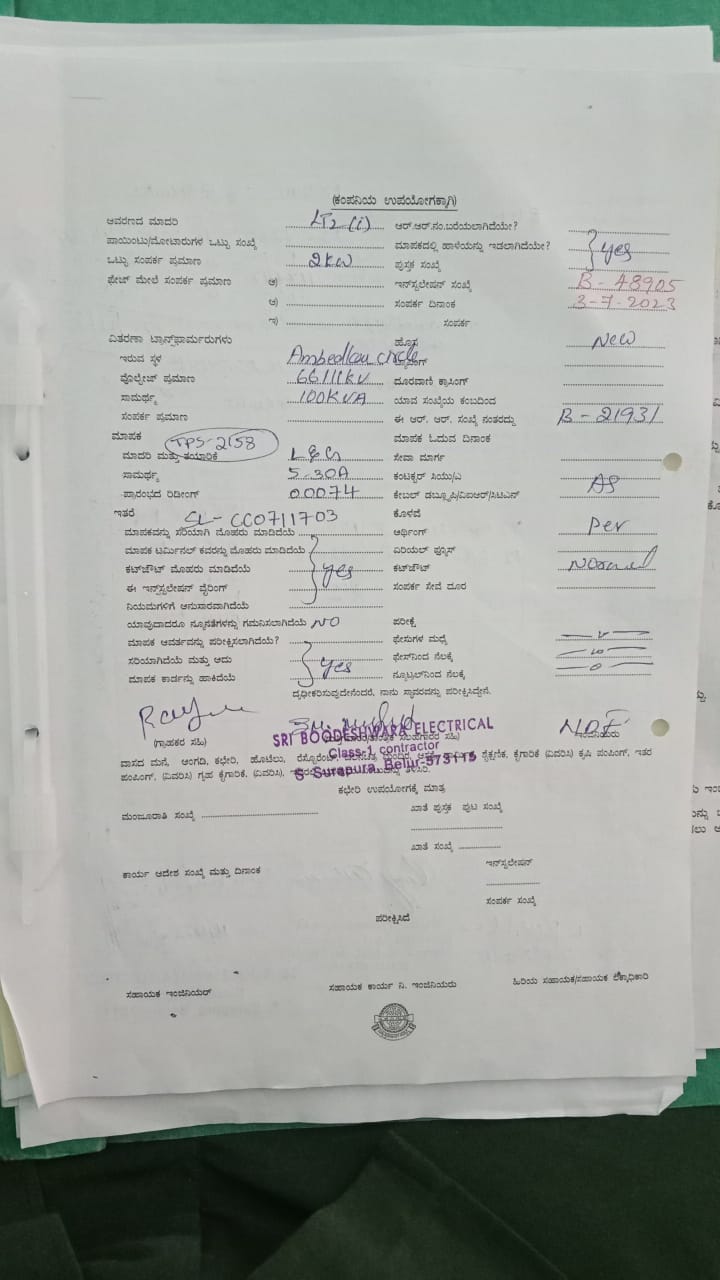 (ಕಂಪನಿಯ ಉಪಯೋಗಕ್ಕಾಗಿ)
ಆವರಣದ ಮಾದರಿ LT2 (i) ಆರ್.ಆರ್.ನಂ.ಬರೆಯಲಾಗಿದೆಯೇ?
ಪಾಯಿಂಟು/ಮೋಟಾರುಗಳ ಒಟ್ಟು ಸಂಖ್ಯೆ ಮಾಪಕದಲ್ಲಿ ಹಾಳೆಯನ್ನು ಇಡಲಾಗಿದೆಯೇ? } yes
ಒಟ್ಟು ಸಂಪರ್ಕ ಪ್ರಮಾಣ 2kw ಪುಸ್ತಕ ಸಂಖ್ಯೆ
ಫೇಜ್ ಮೇಲೆ ಸಂಪರ್ಕ ಪ್ರಮಾಣ ಅ) ಇನ್‌ಸ್ಟಲೇಷನ್ ಸಂಖ್ಯೆ B-48905
ಆ) ಸಂಪರ್ಕ ದಿನಾಂಕ 3-7-2023
ಇ) ಸಂಪರ್ಕ
ವಿತರಣಾ ಟ್ರಾನ್ಸ್‌ಫಾರ್ಮರುಗಳು ಹೊಸ New
ಇರುವ ಸ್ಥಳ Ambedkar circle
ವೋಲ್ಟೇಜ್ ಪ್ರಮಾಣ 66/11kv ದೂರವಾಣಿ ಕ್ರಾಸಿಂಗ್
ಸಾಮರ್ಥ್ಯ 100KVA ಯಾವ ಸಂಖ್ಯೆಯ ಕಂಬದಿಂದ
ಸಂಪರ್ಕ ಪ್ರಮಾಣ ಈ ಆರ್. ಆರ್. ಸಂಖ್ಯೆ ನಂತರದ್ದು B-21931
ಮಾಪಕ TPS-2158 ಮಾಪಕ ಓದುವ ದಿನಾಂಕ
ಮಾದರಿ ಮತ್ತು ತಯಾರಿಕೆ L&G ಸೇವಾ ಮಾರ್ಗ
ಸಾಮರ್ಥ್ಯ 5-30A ಕಂಟಕ್ಟರ್ ಸಿಯು/ಎ
ಪ್ರಾರಂಭದ ರಿಡೀಂಗ್ 00074 ಕೇಬಲ್ ಡಬ್ಲ್ಯೂಪಿ/ವಿಐಆರ್/ಸಿಟಿಎಸ್ AS
ಇತರೆ SL-CC0711703 ಕೊಳವೆ
ಮಾಪಕವನ್ನು ಸರಿಯಾಗಿ ಮೊಹರು ಮಾಡಿದೆಯೆ ಅರ್ಥಿಂಗ್ per
ಮಾಪಕ ಟರ್ಮಿನಲ್ ಕವರನ್ನು ಮೊಹರು ಮಾಡಿದೆಯೆ ಏರಿಯಲ್ ಫ್ಯೂಸ್
ಕಟ್‌ಔಟ್ ಮೊಹರು ಮಾಡಿದೆಯೆ } yes ಕಟ್‌ಔಟ್ Normal
ಈ ಇನ್‌ಸ್ಟಲೇಷನ್ ವೈರಿಂಗ್ ಸಂಪರ್ಕ ಸೇವೆ ದೂರ
ನಿಯಮಗಳಿಗೆ ಅನುಸಾರವಾಗಿದೆಯೆ
ಯಾವುದಾದರೂ ನ್ಯೂನತೆಗಳನ್ನು ಗಮನಿಸಲಾಗಿದೆಯೆ NO ಪರೀಕ್ಷೆ
ಮಾಪಕ ಆವರ್ತವನ್ನು ಪರೀಕ್ಷಿಸಲಾಗಿದೆಯೆ? ಫೇಸುಗಳ ಮಧ್ಯೆ
ಸರಿಯಾಗಿದೆಯೆ ಮತ್ತು ಅದು } yes ಫೇಸ್‌ನಿಂದ ನೆಲಕ್ಕೆ
ಮಾಪಕ ಕಾರ್ಡನ್ನು ಹಾಕಿದೆಯೆ ನ್ಯೂಟ್ರಲ್‌ನಿಂದ ನೆಲಕ್ಕೆ
ದೃಢೀಕರಿಸುವುದೇನೆಂದರೆ, ನಾನು ಸ್ಥಾವರವನ್ನು ಪರೀಕ್ಷಿಸಿದ್ದೇನೆ.
(ಗ್ರಾಹಕರ ಸಹಿ)
SRI BOODESHWARA ELECTRICAL
Class-1 contractor
S Surapura, Belur-573115
ವಾಸದ ಮನೆ, ಅಂಗಡಿ, ಕಛೇರಿ, ಹೊಟೆಲು, ಶೈಕ್ಷಣಿಕ, ಕೈಗಾರಿಕೆ (ವಿವರಿಸಿ) ಕೃಷಿ ಪಂಪಿಂಗ್, ಇತರ
ಪಂಪಿಂಗ್, (ವಿವರಿಸಿ) ಗೃಹ ಕೈಗಾರಿಕೆ, (ವಿವರಿಸಿ),
ಕಛೇರಿ ಉಪಯೋಗಕ್ಕೆ ಮಾತ್ರ
ಮಂಜೂರಾತಿ ಸಂಖ್ಯೆ ಖಾತೆ ಪುಸ್ತಕ ಪುಟ ಸಂಖ್ಯೆ
ಖಾತೆ ಸಂಖ್ಯೆ
ಕಾರ್ಯ ಆದೇಶ ಸಂಖ್ಯೆ ಮತ್ತು ದಿನಾಂಕ ಇನ್‌ಸ್ಟಲೇಷನ್
ಸಂಪರ್ಕ ಸಂಖ್ಯೆ
ಪರೀಕ್ಷಿಸಿದೆ
ಸಹಾಯಕ ಇಂಜಿನಿಯರ್ ಸಹಾಯಕ ಕಾರ್ಯ ನಿ. ಇಂಜಿನಿಯರು ಹಿರಿಯ ಸಹಾಯಕ/ಸಹಾಯಕ ಲೆಕ್ಕಾಧಿಕಾರಿ